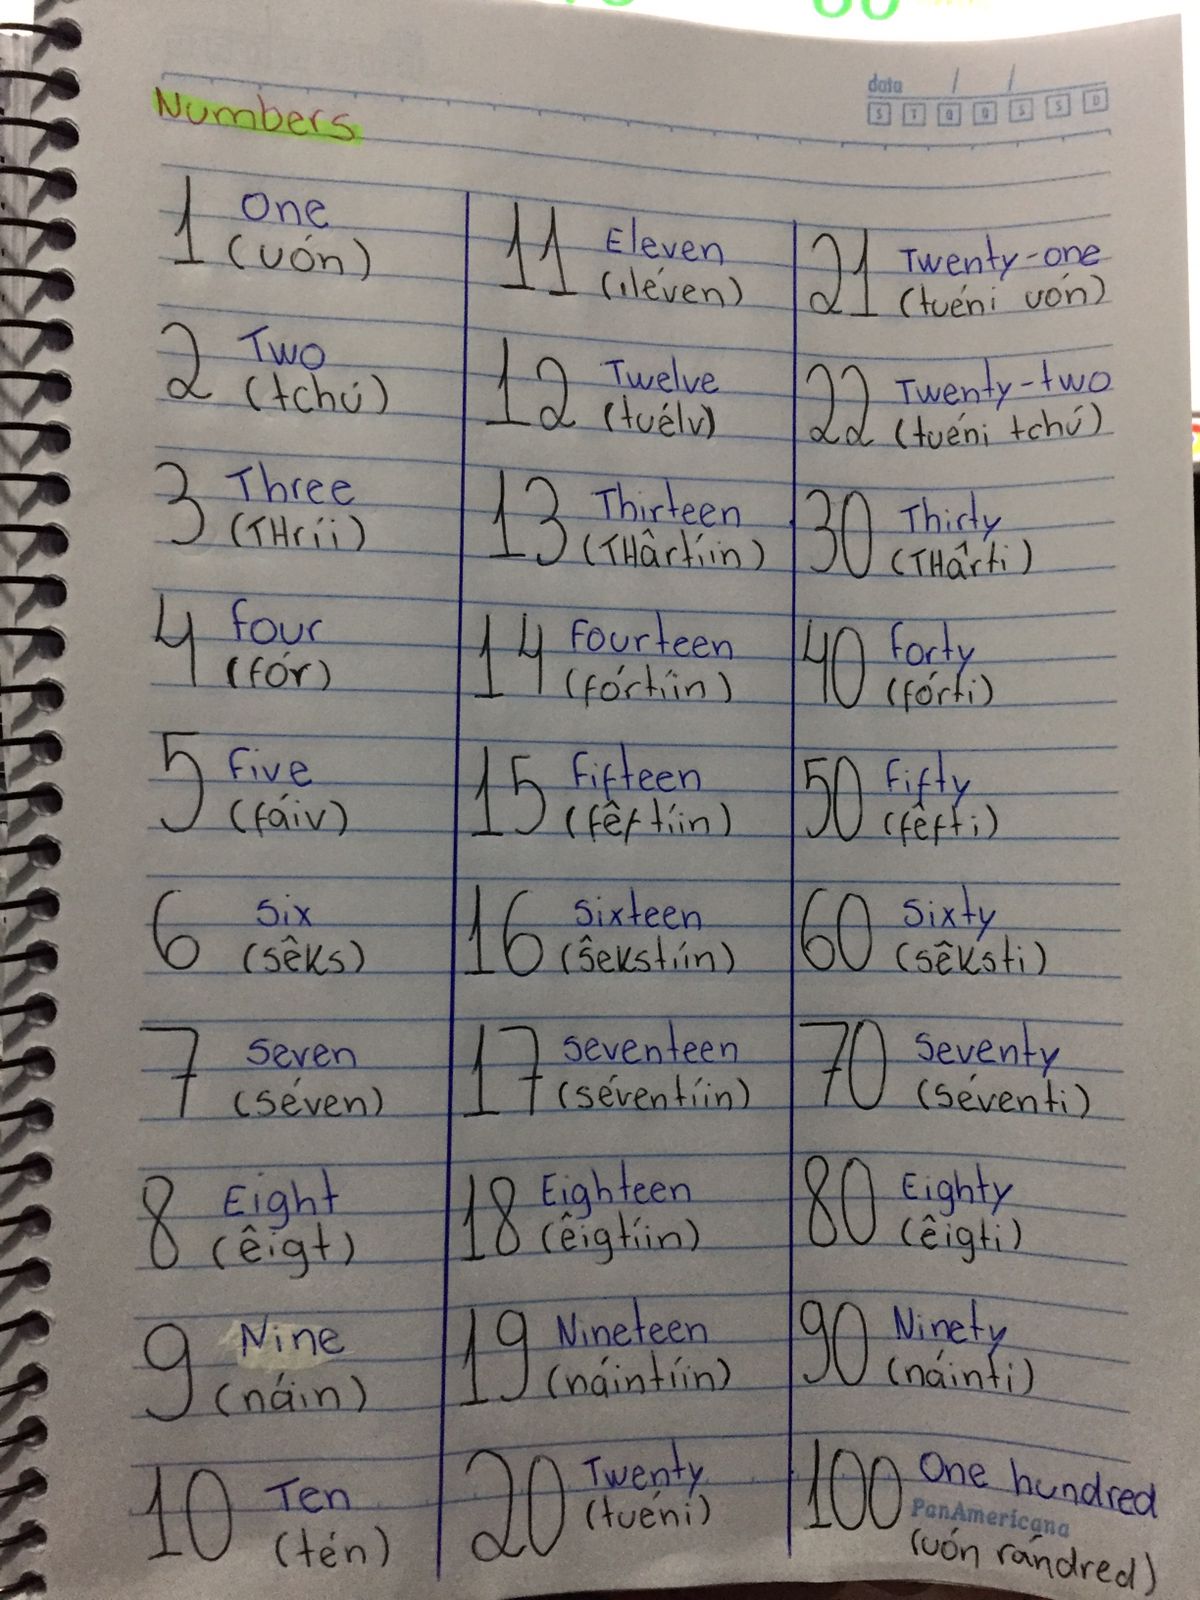 data / /
S T Q Q S S D
Numbers
1 One
(uón)
2 Two
(tchú)
3 Three
(THríi)
4 four
(fór)
5 five
(fáiv)
6 six
(sêks)
7 seven
(séven)
8 Eight
(êigt)
9 Nine
(náin)
10 Ten
(tén)
11 Eleven
(iléven)
12 Twelve
(tuélv)
13 Thirteen
(THârtíin)
14 fourteen
(fórtíin)
15 fifteen
(fêftíin)
16 sixteen
(sêkstíin)
17 seventeen
(séventíin)
18 Eighteen
(êigtíin)
19 Nineteen
(náintíin)
20 Twenty
(tuéni)
21 Twenty-one
(tuéni uón)
22 Twenty-two
(tuéni tchú)
30 Thirty
(THârti)
40 forty
(fórti)
50 fifty
(fêfti)
60 sixty
(sêksti)
70 seventy
(séventi)
80 Eighty
(êigti)
90 Ninety
(náinti)
100 One hundred
PanAmericana
(uón rândred)